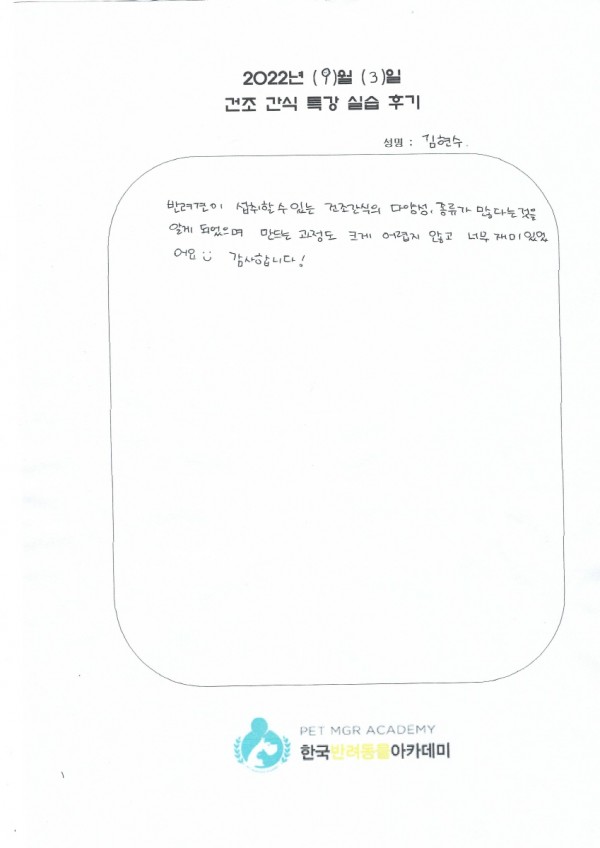 2022년 (9)월 (3)일
건조 간식 특강 실습 후기
성명 : 김현수.
반려견이 섭취할 수 있는 건조간식의 다양성, 종류가 많다는 것을
알게 되었으며 만드는 과정도 크게 어렵지 않고 너무 재미있었
어요 감사합니다!
PET MGR ACADEMY
한국반려동물아카데미